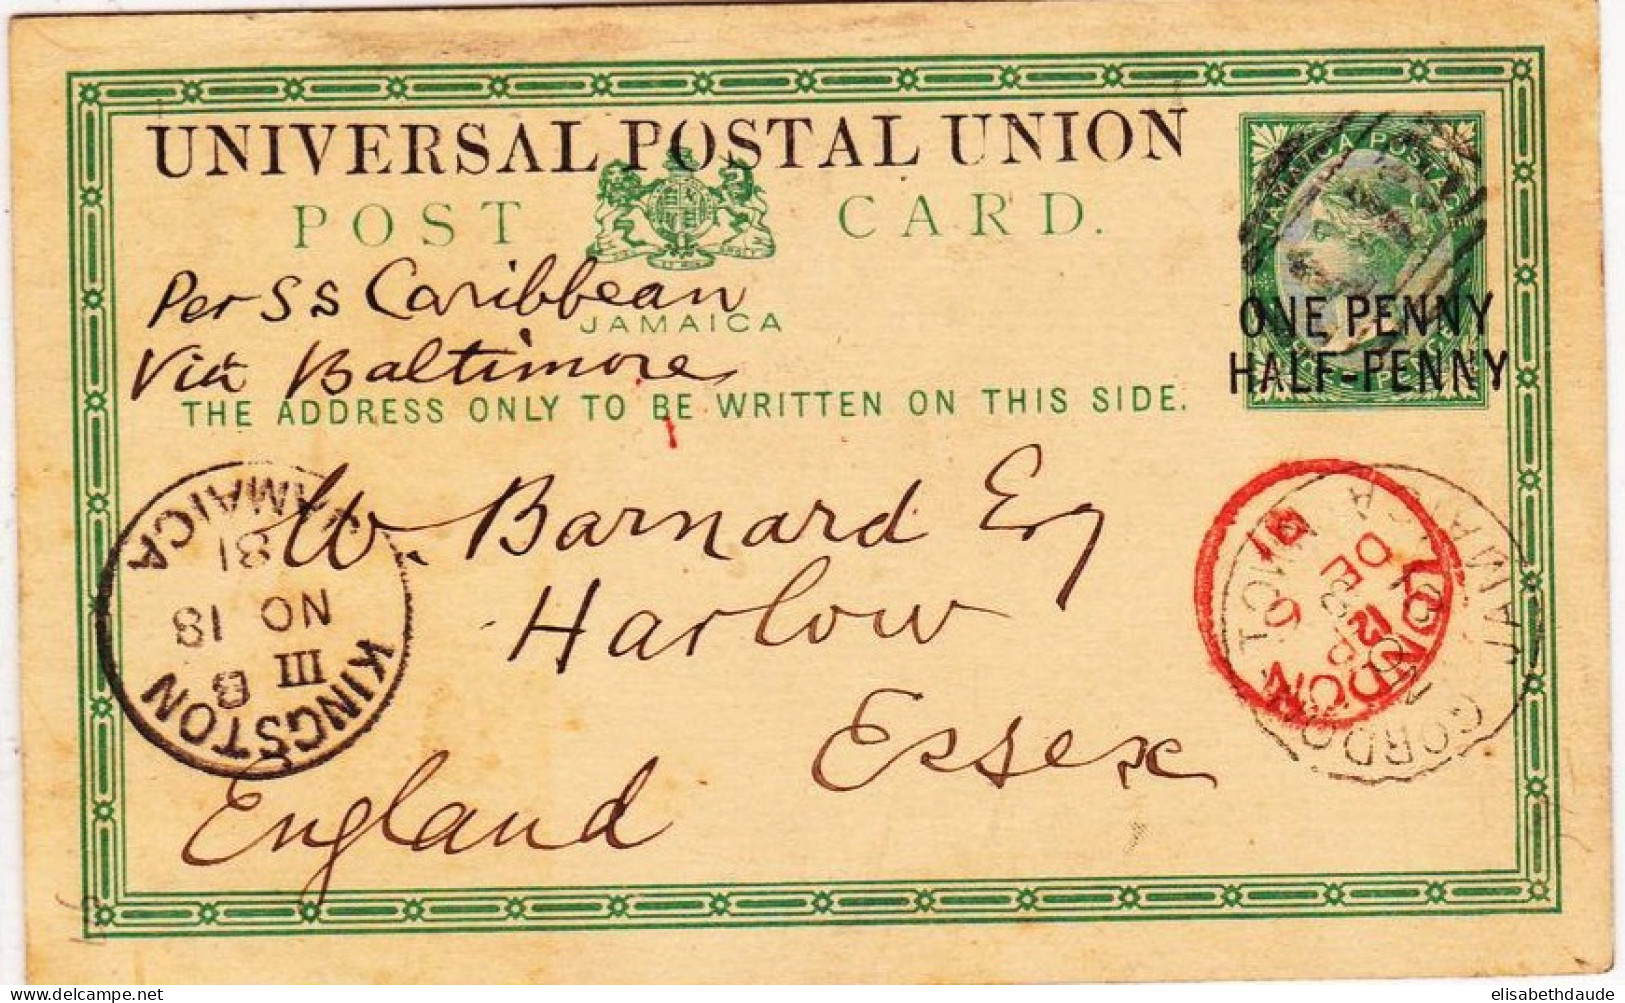 UNIVERSAL POSTAL UNION
POST CARD.
JAMAICA POSTAGE
Per SS Caribbean
JAMAICA
Via Baltimore
ONE PENNY
HALF-PENNY
THE ADDRESS ONLY TO BE WRITTEN ON THIS SIDE.
W. Barnard Esq
Harlow
Essex
England
KINGSTON
III B
NO 18
81
JAMAICA
LONDON
12
DE
6
81
GORDON
JAMAICA
elisabethdaude